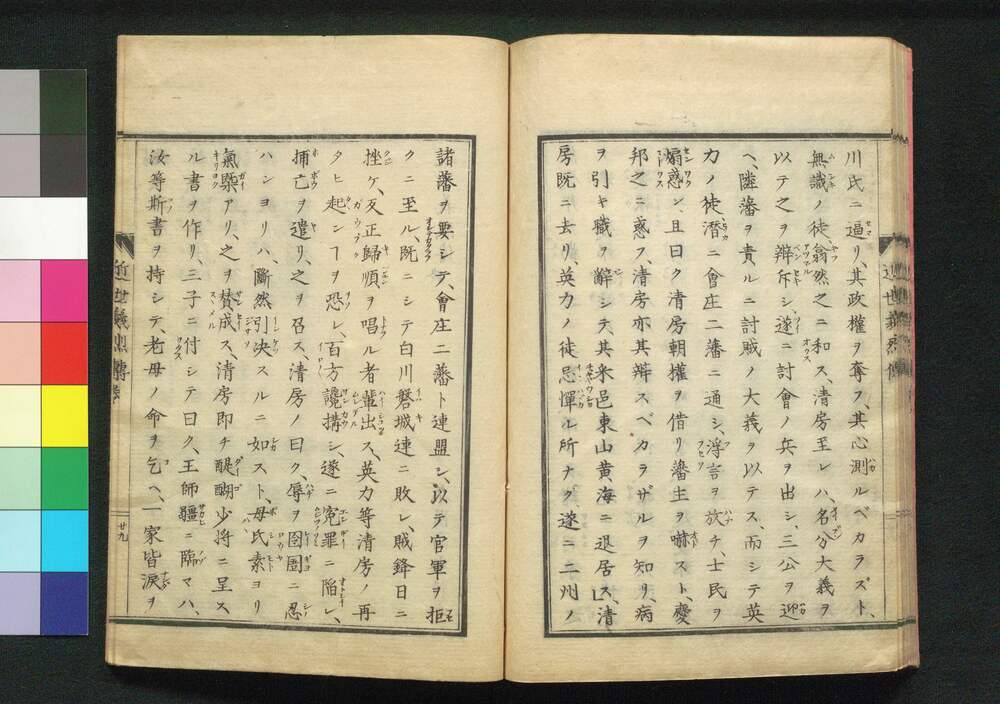 川氏ニ逼リ、其政權ヲ奪フ、其心測ルベカラズト、
無識ノ徒翕然之ニ和ス、清房至レハ、名分大義ヲ
以テ之ヲ辯斥シ、遂ニ討會ノ兵ヲ出シ、三公ヲ迎
ヘ、隣藩ヲ責ルニ討賊ノ大義ヲ以テス、而シテ英
力ノ徒潛ニ會庄二藩ニ通シ、浮言ヲ放チ、士民ヲ
煽惑シ、且曰ク清房朝權ヲ借リ藩生ヲ嚇スト、慶
邦之ニ惑フ、清房亦其辯スベカラザルヲ知リ、病
ヲ引キ職ヲ辭シテ、其采邑東山黄海ニ退居ス、清
房既ニ去リ英力ノ徒忌憚ル所ナク、遂ニ二州ノ
諸藩ヲ要シテ、會庄二藩ト連盟シ、以テ官軍ヲ拒
クニ至ル、既ニシテ白川磐城連ニ敗レ、賊鋒日ニ
挫ケ、反正歸順ヲ唱ル者輩出ス、英力等清房ノ再
タヒ起ンヿヲ恐レ、百方讒搆シ、遂ニ寃罪ニ陷レ、
捕亡ヲ遣リ、之ヲ召ス、清房ノ曰ク、辱ヲ囹圄ニ忍
ハンヨリハ、斷然引决スルニ如スト、母氏素ヨリ
氣槩アリ、之ヲ賛成ス、清房即チ醍醐少將ニ呈ス
ル書ヲ作リ、三子ニ付シテ曰ク、王師疆ニ臨マハ、
汝等斯書ヲ持シテ、老母ノ命ヲ乞ヘ、一家皆淚ヲ
近世義烈傳
廿九